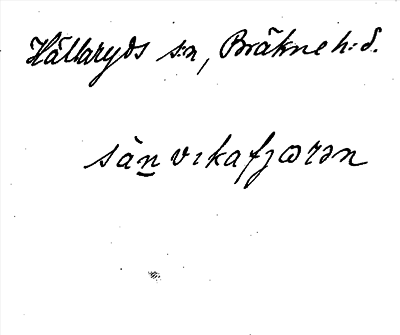 Hällaryds s:n, Bräkne h:d.
sàn̲vıkafjɷrən